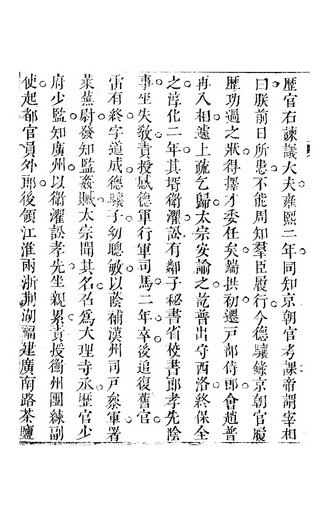 歷官右諫議大夫雍熙二年同知京朝官考課帝謂宰相
曰朕前日所患不能周知羣臣履行今德驤錄京朝官履
歷功過之狀得擇才委任矣端拱初遷戸部侍郎會趙普
再入相遽上疏乞歸太宗安諭之訖普出守西洛終保全
之淳化二年其壻衛濯訟有鄰子秘書省校書郎孝先陰
事坐失敎責授感德軍行軍司馬二年卒後追復舊官
雷有終字道成德驤子幼聰敏以蔭補漢州司戸叅軍署
萊蕪尉發知監姦贓太宗聞其名召爲大理寺丞歷官少
府少監知廣州以衛濯訟孝先坐親累責授衡州團練副
使起都官員外郎後領江淮兩浙荆湖福建廣南路茶鹽